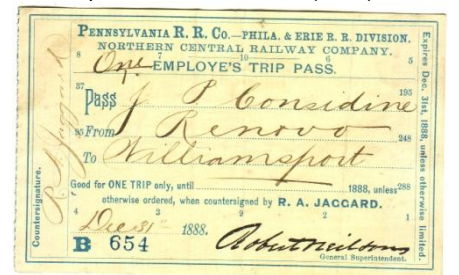 PENNSYLVANIA R. R. CO.—PHILA. & ERIE R. R. DIVISION.
NORTHERN CENTRAL RAILWAY COMPANY.
8 7 10 6 5
One EMPLOYE'S TRIP PASS.
37 195
Pass J P Considine
85 From Renovo 248
To Williamsport
Good for ONE TRIP only, until 1888, unless 288
otherwise ordered, when countersigned by R. A. JAGGARD.
4 3 9 2 1
Dec 31 1888.
B 654 Robert Neilson
General Superintendent.
Countersignature.
R. A. Jaggard
Expires Dec. 31st, 1888, unless otherwise limited.